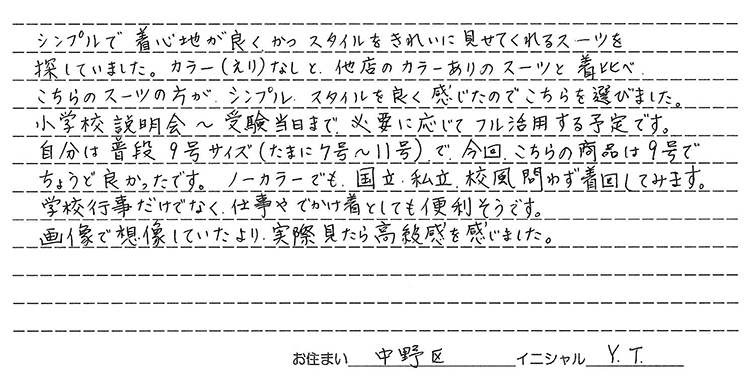 シンプルで着心地が良く、かつスタイルをきれいに見せてくれるスーツを
探していました。カラー(えり)なしと、他店のカラーありのスーツと着比べ、
こちらのスーツの方が、シンプル、スタイルを良く感じたのでこちらを選びました。
小学校説明会～受験当日まで、必要に応じてフル活用する予定です。
自分は普段9号サイズ(たまに7号～11号)で、今回、こちらの商品は9号で
ちょうど良かったです。ノーカラーでも、国立、私立、校風問わず着回してみます。
学校行事だけでなく、仕事やでかけ着としても便利そうです。
画像で想像していたより、実際見たら高級感を感じました。
お住まい 中野区 イニシャル Y.T.